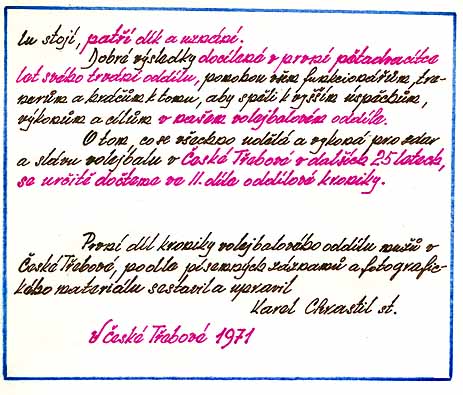 lu stojí, patří dík a uznání.
Dobré výsledky docílené v první pětadvacítce
let svého trvání oddílu, pomohou všem funkcionářům, tre-
nerům a hráčům k tomu, aby spěli k vyšším úspěchům,
výkonům a cílům v našem volejbalovém oddíle.
O tom, co se všechno udělá a vykoná pro zdar
a slávu volejbalu v České Třebové v dalších 25 letech,
se určitě dočteme ve II. díle oddílové kroniky.
První díl kroniky volejbalového oddílu mužů v
České Třebové, podle písemných záznamů a fotografic-
kého materiálu sestavil a upravil
Karel Chrastil st.
V České Třebové 1971